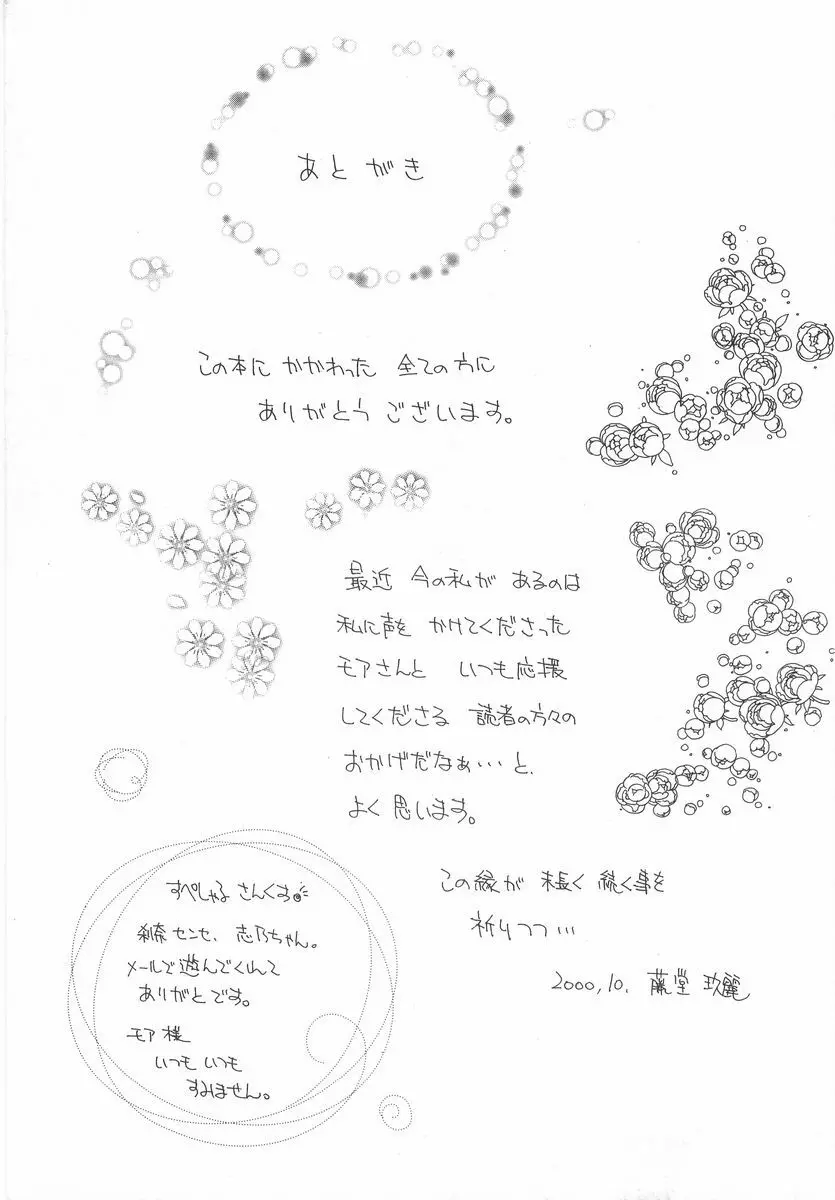 あとがき
この本に かかわった 全ての方に
ありがとう ございます。
最近 今の私が あるのは
私に声を かけてくださった
モアさんと いつも応援
してくださる 読者の方々の
おかげだなぁ・・・と、
よく 思います。
この縁が 末長く 続く事を
祈りつつ…
2000,10. 藤堂 玖麗
すぺしゃる さんくす
センセ、志乃ちゃん。
メールで遊んでくれて
ありがとです。
モア様
いつも いつも
すみません。